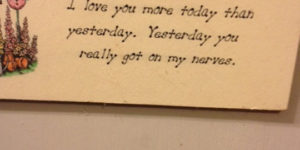 I love you more today than
yesterday. Yesterday you
really got on my nerves.